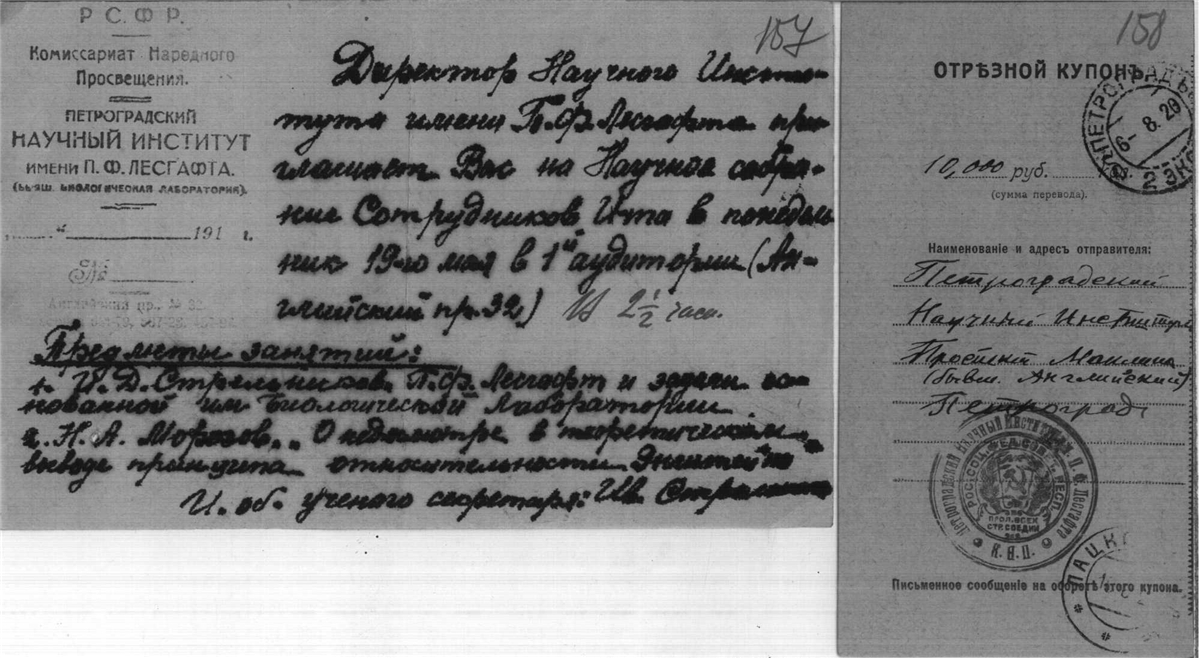 Р. С. Ф. Р.
Комиссариат Народного
Просвещения.
ПЕТРОГРАДСКИЙ
НАУЧНЫЙ ИНСТИТУТ
ИМЕНИ П. Ф. ЛЕСГАФТА.
(БЫВШ. БИОЛОГИЧЕСКАЯ ЛАБОРАТОРИЯ).
" 191 г.
№
Английский пр., № 32.
157
Директор Научного Инсти-
тута имени П. Ф. Лесгафта при-
глашает Вас на Научное собра-
ние Сотрудников И-та в понедель
ник 19-го мая в 1й аудитории (Ан-
глийский пр. 32.) в 2 1/2 часа.
Предметы занятий:
1. И. Д. Стрельников. П. Ф. Лесгафт и задачи ос-
нованной им Биологической Лаборатории.
2. Н. А. Морозов. „О недосмотре в теоретическом
выводе принципа относительности Энштейна"
И. об. ученого секретаря: Ив. Стрельников
158
ОТРѢЗНОЙ КУПОНЪ
ПЕТРОГРАДЪ
6- 8. 20
2 ЭКС
10,000 руб.
(сумма перевода).
Наименованіе и адресъ отправителя:
Петроградский
Научный Институт
Проспект Маклина
(бывш. Английский)
Петроград
Петроградский Научный Институт им. П. Ф. Лесгафта
РОС. СОЦ. ФЕД. СОВ. РЕСП.
ПРОЛ. ВСЕХ
СТР. СОЕДИН
К. Н. П.
Письменное сообщеніе на оборотѣ этого купона.